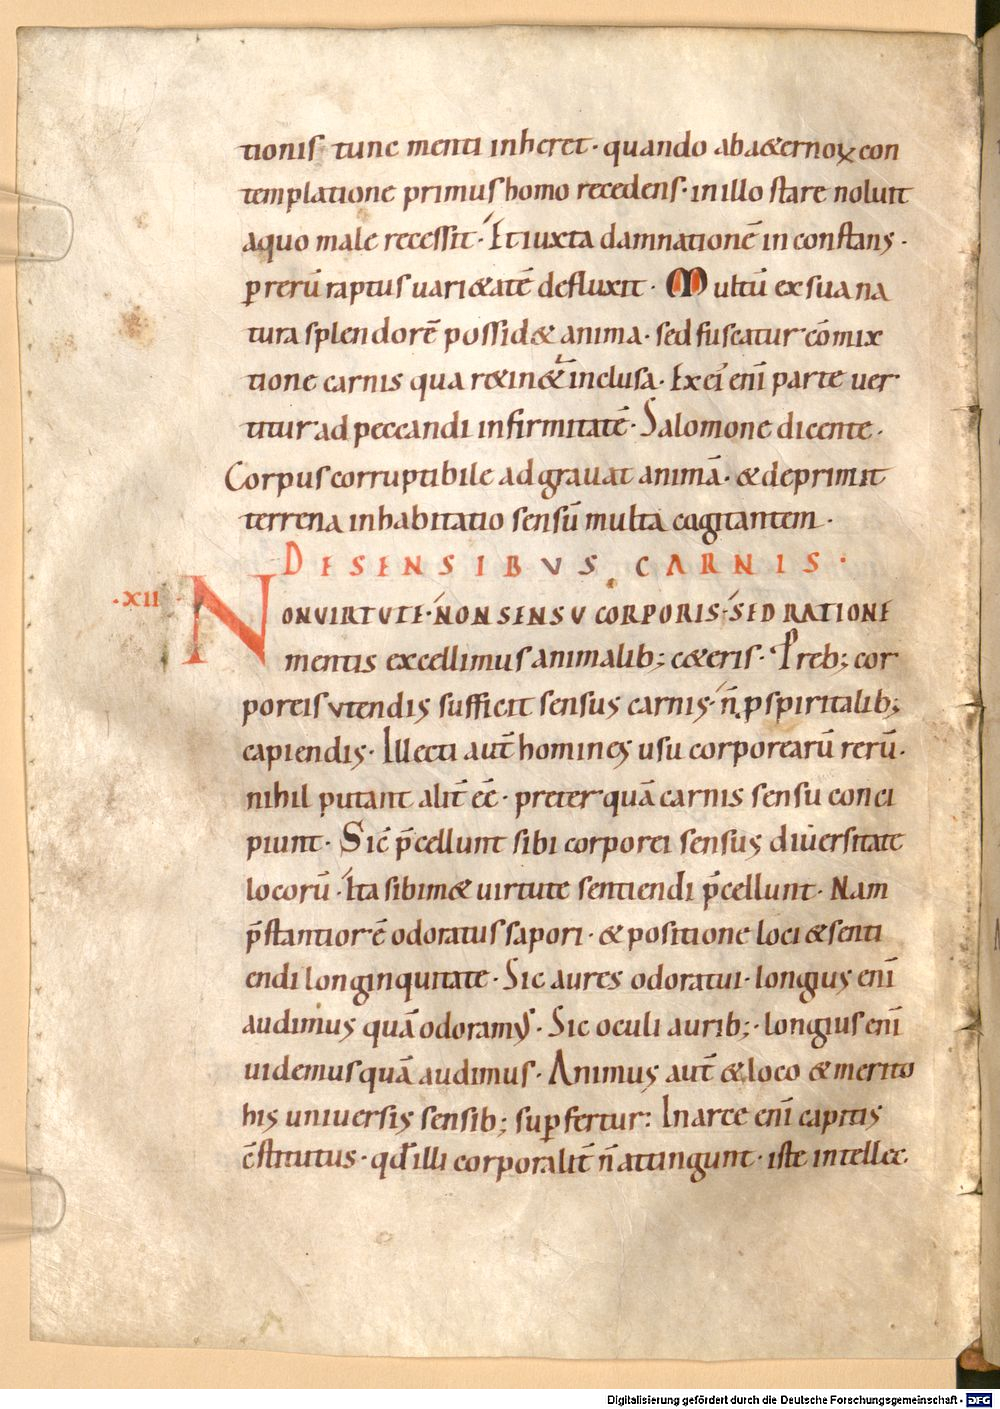 tionis tunc menti inheret · quando aba&ernoꝝ con
templatione primus homo recedens · in illo stare noluit
aquo male recessit · Et iuxta damnationē in constans ·
ꝑ rerū raptus uari&atē defluxit · Multū ex sua na
tura splendorē possid& anima · sed fuscatur cōmix
tione carnis qua r&in&ur inclusa · Ex ei᷒ eni᷒ parte uer
titur ad peccandi infirmitatē · Salomone dicente ·
Corpus corruptibile ad grauat animā · & deprimit
terrena inhabitatio sensū multa cogitantem ·
DE SENSIBVS CARNIS ·
·XII· NON VIRTUTE · NON SENSU CORPORIS · SED RATIONE
mentis excellimus animalib; c&eris · Pro reb; cor
poreis vtendis sufficit sensus carnis · n̄ ꝓ spiritalib;
capiendis · Illecti aut̄ homines usu corporearū rerū ·
nihil putant alit̄ eē · preter quā carnis sensu conci
piunt · Sic̄ p̄cellunt sibi corporei sensus diuersitate
locorū · Ita sibim& uirtute sentiendi p̄cellunt · Nam
p̄stantior ē odoratus sapori · & positione loci & senti
endi longinquitate · Sic aures odoratui · longius enī
audimus quā odoramus · Sic oculi aurib; · longius enī
uidemus quā audimus · Animus aut̄ & loco & merito
his uniuersis sensib; suꝑfertur : In arce enī capitis
c̄stitutus · qd̄ illi corporalit̄ n̄ attingunt · iste intellec
Digitalisierung gefördert durch die Deutsche Forschungsgemeinschaft - DFG